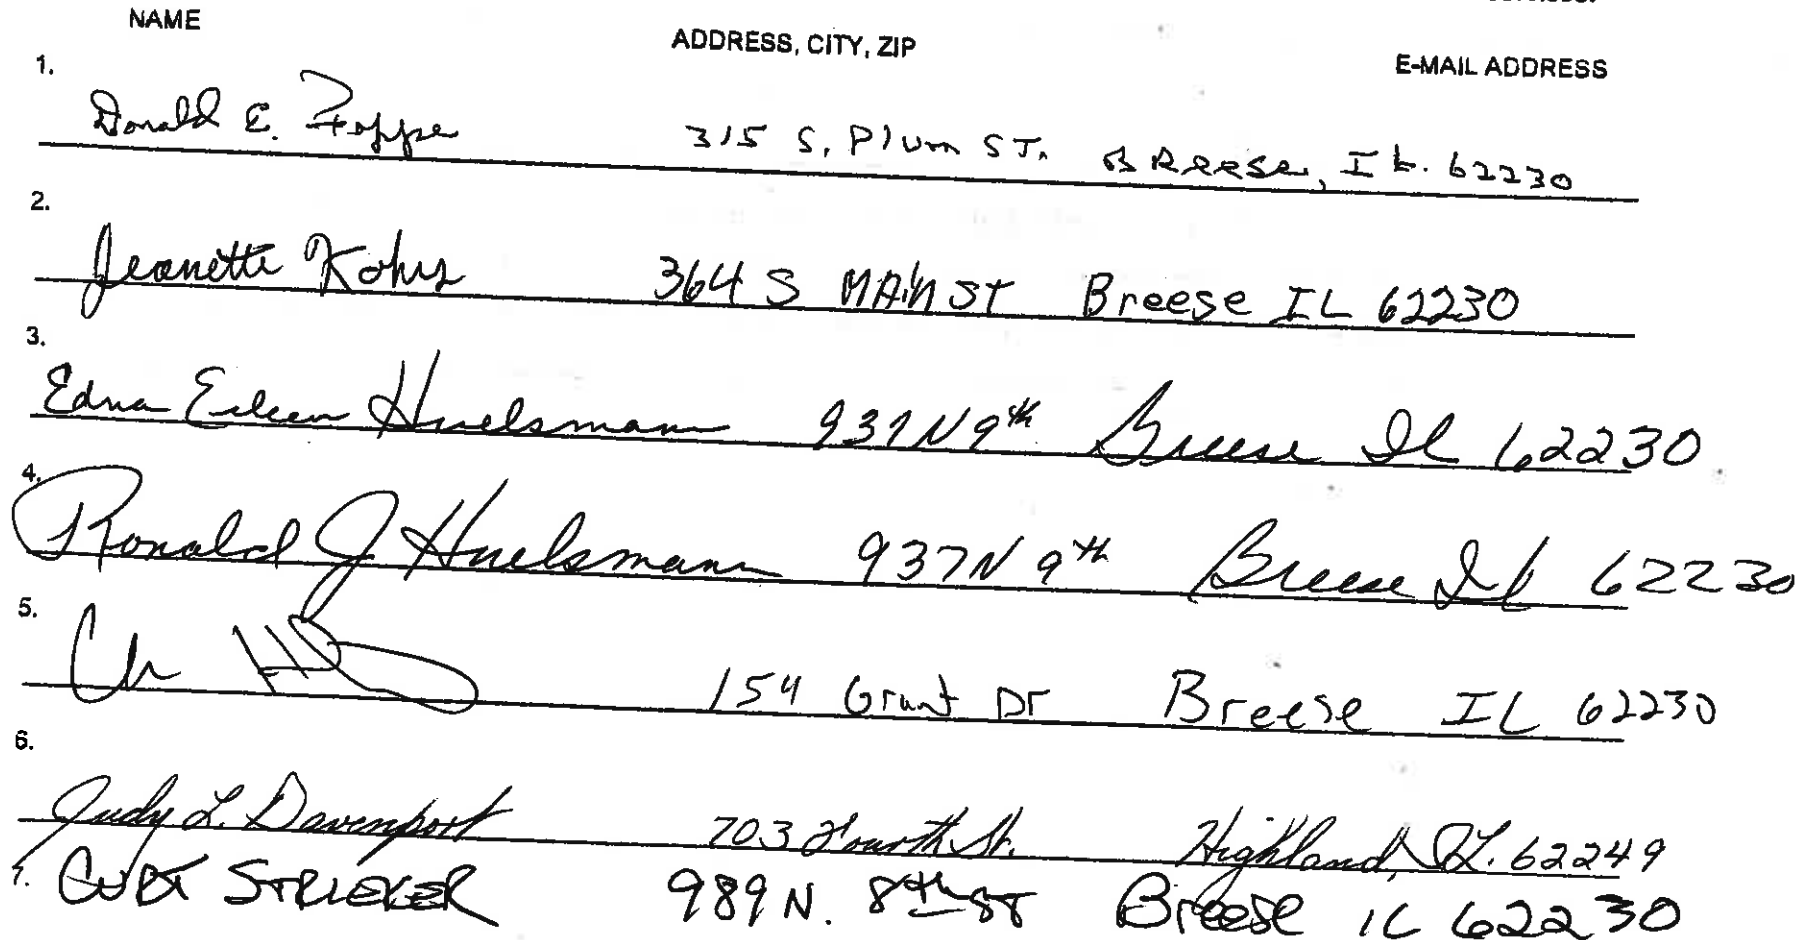 NAME ADDRESS, CITY, ZIP E-MAIL ADDRESS
1. Donald E. Foppe 315 S. Plum ST. BReese, IL. 62230
2. Jeanette Kohrs 364 S MAiN ST Breese IL 62230
3. Edna Eileen Huelsmann 937 N 9th Breese Il 62230
4. Ronald J Huelsmann 937 N 9th Breese Il 62230
5. 154 Grant Dr Breese IL 62230
6. Judy L. Davenport 703 Fourth St. Highland, IL. 62249
7. CURT STRIEKER 989 N. 8th ST Breese IL 62230